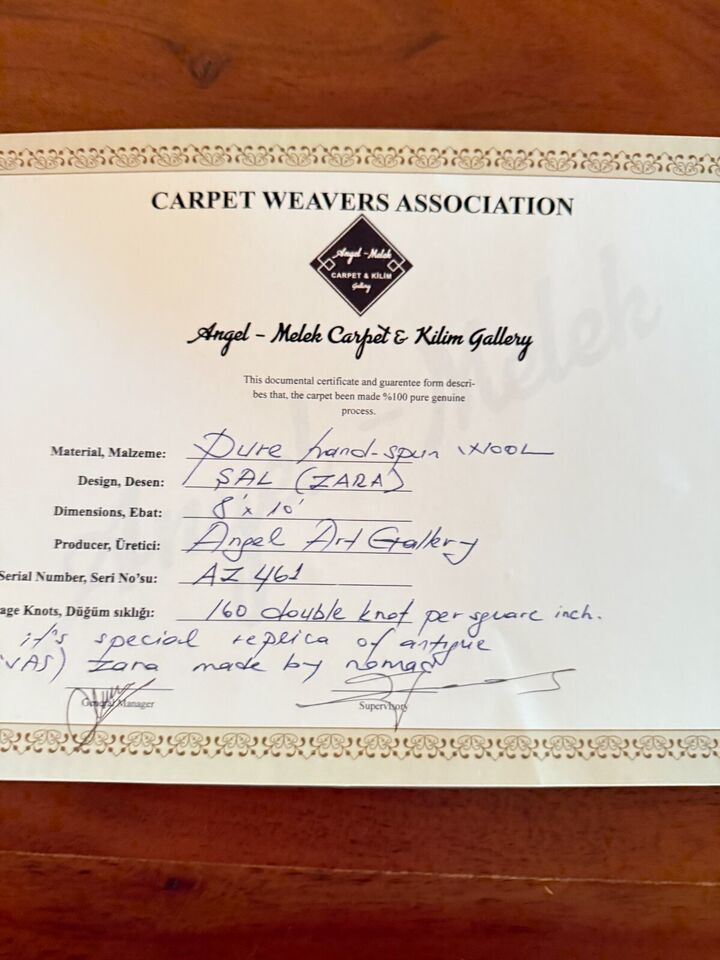 CARPET WEAVERS ASSOCIATION
Angel - Melek
CARPET & KİLİM
Gallery
Angel - Melek Carpet & Kilim Gallery
This documental certificate and guarentee form descri-
bes that, the carpet been made %100 pure genuine
process.
Material, Malzeme: Pure hand-spun WOOL
Design, Desen: ŞAL (ZARA)
Dimensions, Ebat: 8' x 10'
Producer, Üretici: Angel Art Gallery
Serial Number, Seri No'su: AZ 461
age Knots, Düğüm sıklığı: 160 double knot per square inch.
it's special replica of antique
VAS) zara made by nomad
General Manager Supervisory
Angel - Melek